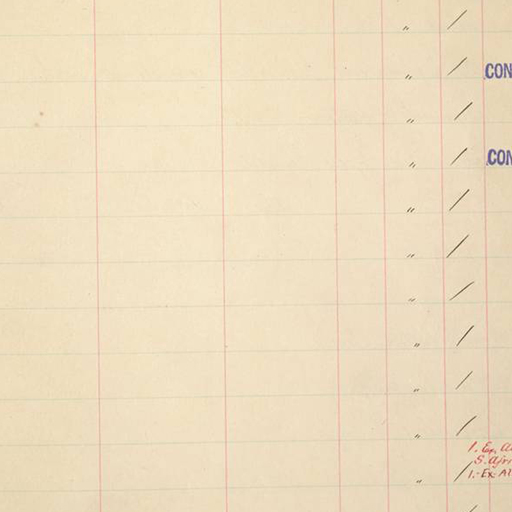 " /
" / CON
" /
" / CON
" /
" /
" /
" /
" /
" /
1. Ex. A
S. Afri
" / 1.- Ex. Al
/